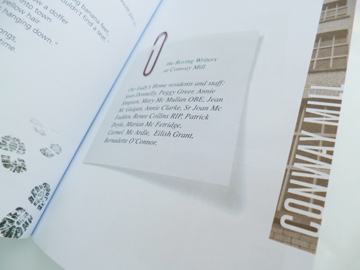 ow a doffer
into town
yellow hair
hanging down."
ongs,
time.
the Roving Writers
at Conway Mill
Our Lady's Home residents and staff:
Jean Donnelly, Peggy Greer, Annie
Simpson, Mary Mc Mullan OBE, Jean
Mc Guigan, Annie Clarke, Sr Joan Mc
Fadden, Renee Collins RIP, Patrick
Doyle, Marian Mc Fetridge,
Carmel Mc Ardle, Eilish Grant,
Bernadette O'Connor.
CONWAY MILL